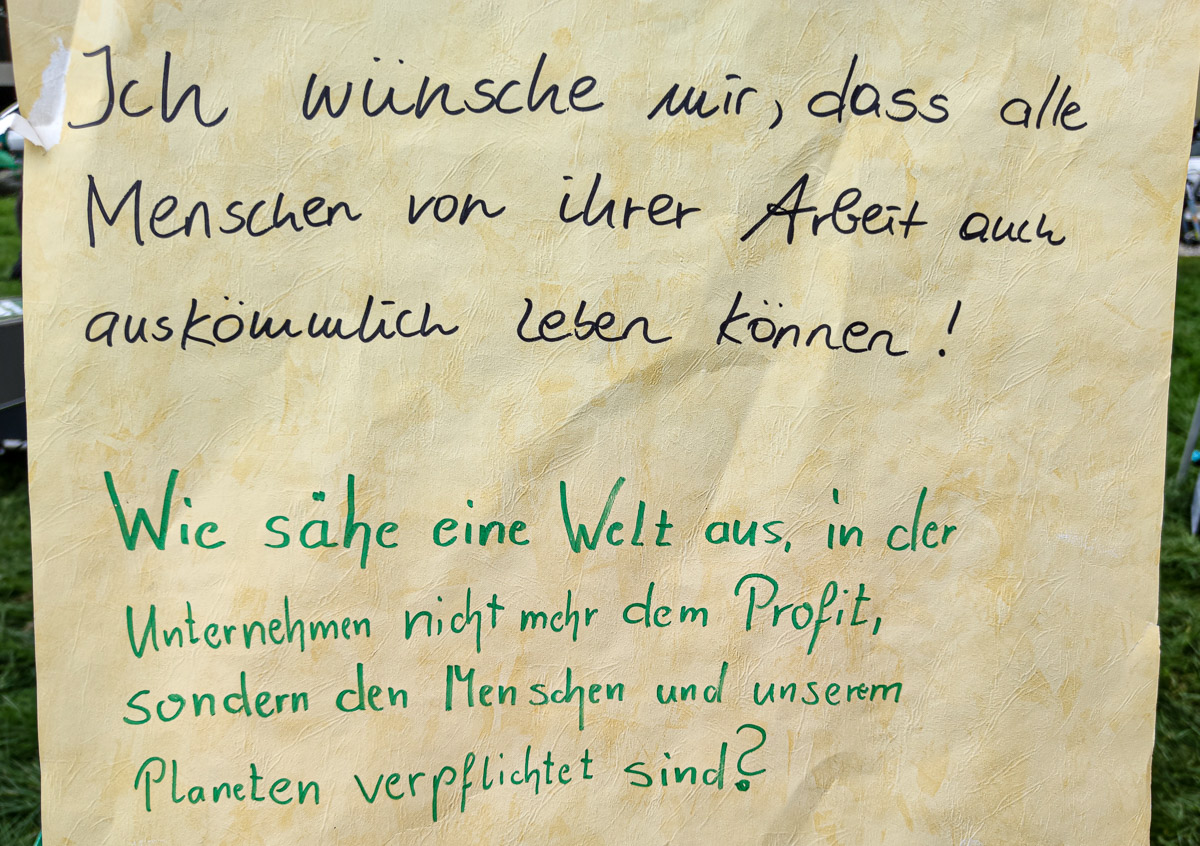 Ich wünsche mir, dass alle
Menschen von ihrer Arbeit auch
auskömmlich leben können!
Wie sähe eine Welt aus, in der
Unternehmen nicht mehr dem Profit,
sondern den Menschen und unserem
Planeten verpflichtet sind?